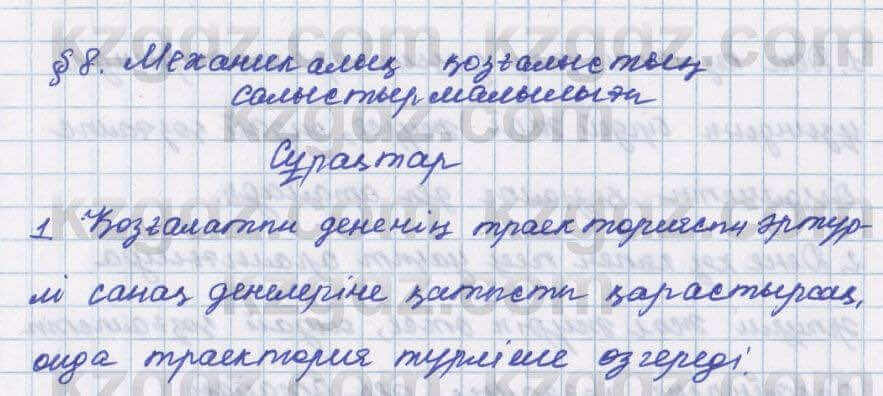 § 8. Механикалық қозғалыстың
салыстырмалылығы
Сұрақтар
1 Қозғалатын дененің траекториясын әртүр-
лі санақ денелеріне қатысты қарастырсақ,
онда траектория түрліше өзгереді.